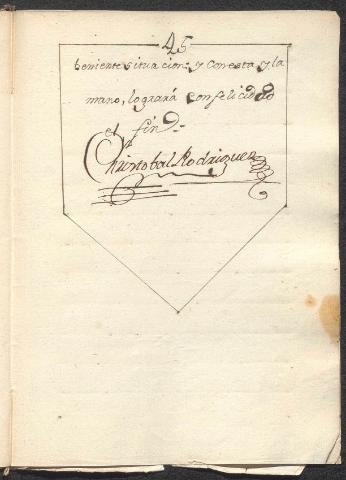 45
beniente situacion: y con esta y la
mano, lograrà con felicidad
el fin.
Christobal Rodriguez